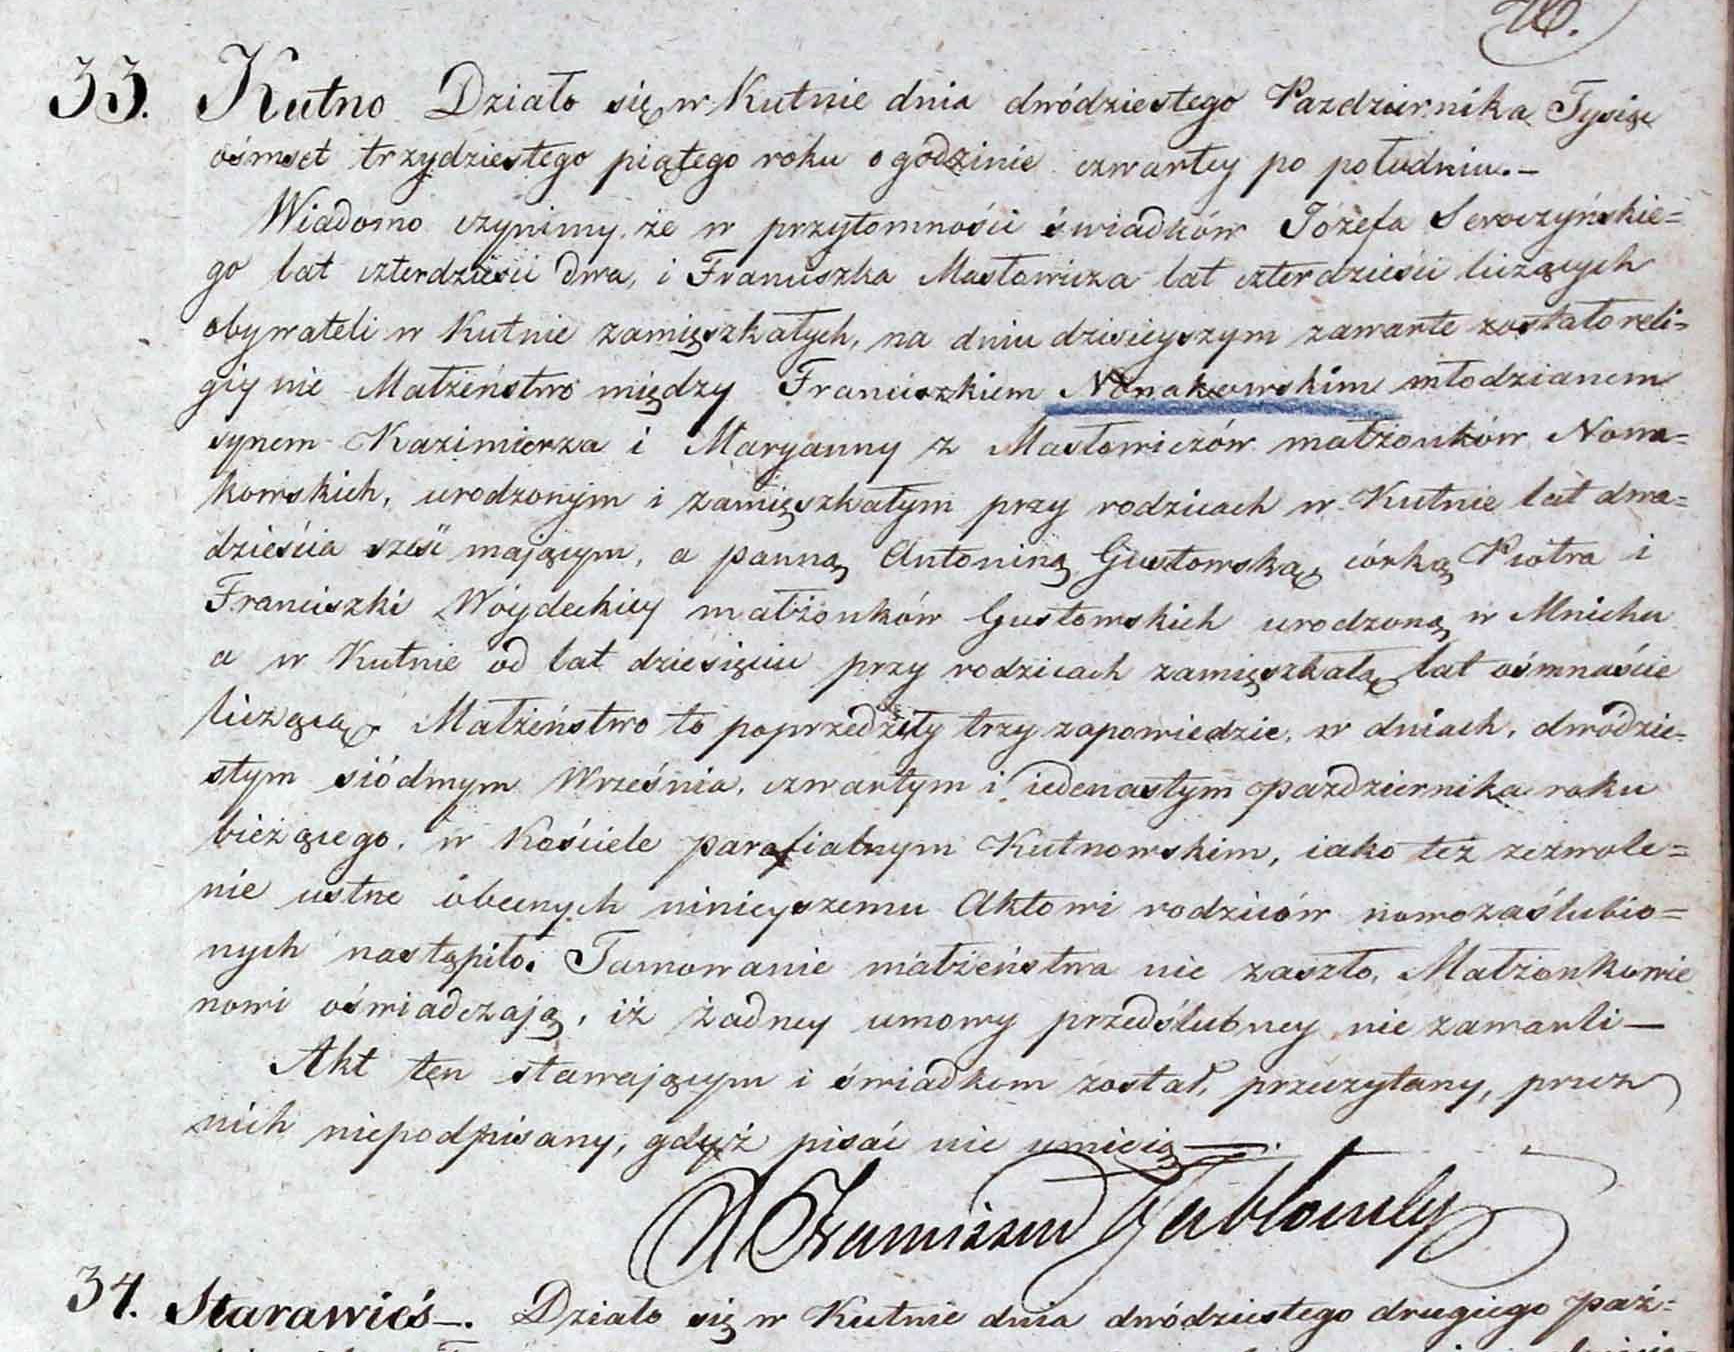 33. Kutno Działo się w Kutnie dnia dwódziestego Pazdziernika Tysiąc
ośmset trzydziestego piątego roku o godzinie czwartey po południu.–
Wiadomo czynimy że w przytomności świadków Józefa Seroczyńskie=
go lat czterdzieści dwa, i Franciszka Masłowicza lat czterdzieści liczących
obywateli w Kutnie zamięszkałych, na dniu dzisieyszym zawarte zostało reli=
giy nie Małżeństwo między Franciszkiem Nowakowskim młodzianem
synem Kazimierza i Maryanny z Masłowiczów małżonków Nowa=
kowskich, urodzonym i zamięszkałym przy rodzicach w Kutnie lat dwa=
dzieścia sześć mającym, a panną Antoniną Gustowską, córką Piotra i
Franciszki Wóydeckiey małżonków Gustowskich urodzoną w Mnichu
a w Kutnie od lat dziesięciu przy rodzicach zamięszkałą lat ośmnaście
liczącą. Małżeństwo to poprzedziły trzy zapowiedzie, w dniach, dwódzie=
stym siódmym Września, czwartym i iedenastym pazdziernika roku
bieżącego, w Kościele parafialnym Kutnowskim, iako też zezwole=
nie ustne obecnych ninieyszemu Aktowi rodziców nowozaślubio=
nych nastąpiło. Tamowanie małżeństwa nie zaszło, Małżonkowie
nowi oświadczają, iż żadney umowy przedślubney nie zawarli –
Akt ten stawającym i świadkom został, przeczytany, przez
nich niepodpisany, gdyż pisać nie umieią –
34. Starawieś –. Działo się w Kutnie dnia dwódziestego drugiego paź=